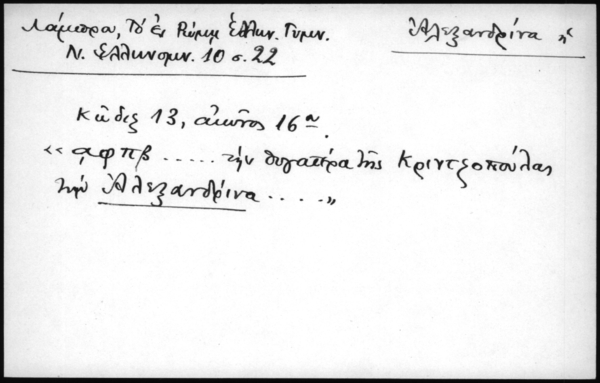 Λάμπρου, Τό ἐν Ρώμῃ Ἑλλην. Γυμν.
Ν. Ἑλληνομν. 10 σ. 22
Ἀλεξανδρίνα ἡ
Κῶδιξ 13, αἰῶνος 16ου.
«͵αφπβ ..... τὴν θυγατέρα τῆς Κριντζοπούλας
τὴν Ἀλεξανδρίνα .... »